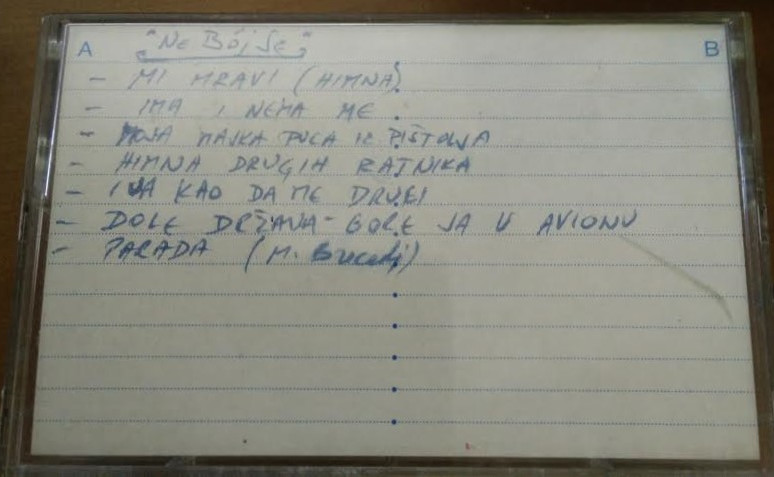 A "Ne Boj se" B
- MI MRAVI (HIMNA)
- IMA I NEMA ME
- MOJA MAJKA PUCA IZ PIŠTOLJA
- HIMNA DRUGIH RATNIKA
- I JA KAO DA ME DRUGI
- DOLE DRŽAVA - GORE JA U AVIONU
- PARADA (M.